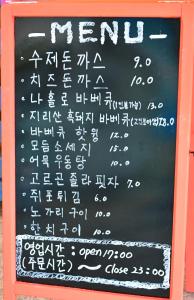 -MENU-
· 수제돈까스 9.0
· 치즈돈까스 10.0
· 나홀로 바베큐 13.0
· 지리산 흑돼지 바베큐
· 바베큐 핫윙 12.0
· 모듬소세지 15.0
· 어묵우동탕 10.0
· 고르곤졸라 핏자 7.0
· 쥐포튀김 6.0
· 노가리구이 10.0
· 한치구이 10.0
영업시간 : open 17:00
(주문시간) ~ Close 23:00